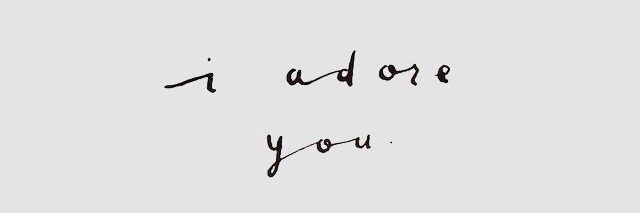 i adore
you.